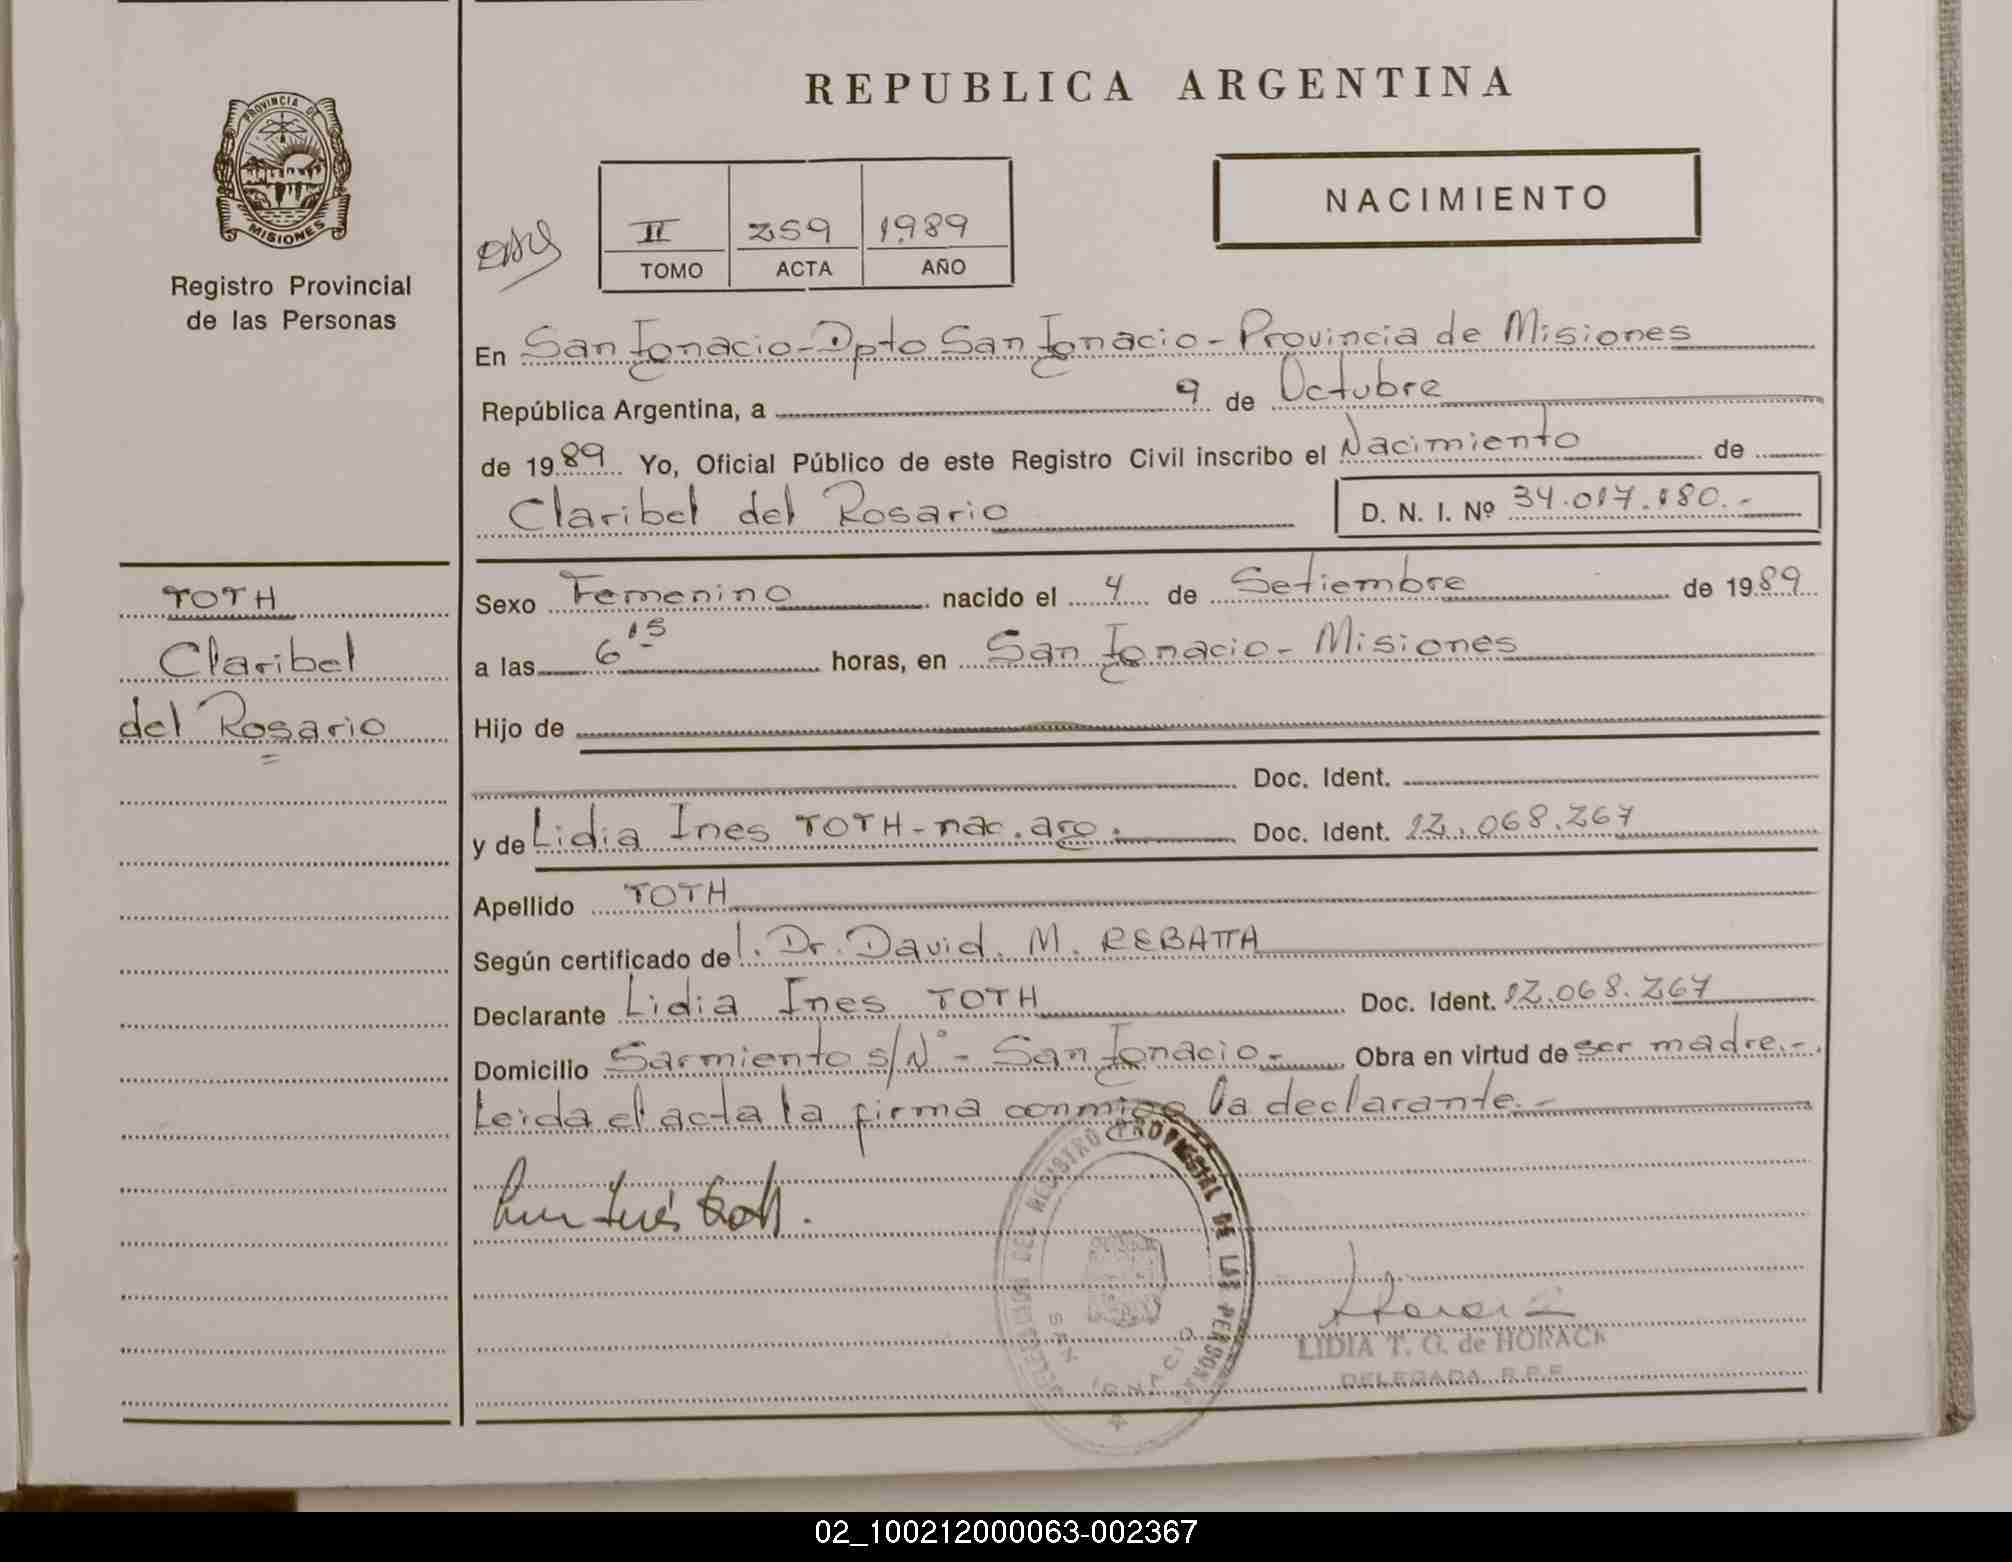 REPUBLICA ARGENTINA
PROVINCIA DE
MISIONES
Registro Provincial
de las Personas
NACIMIENTO
II 259 1989
TOMO ACTA AÑO
En San Ignacio - Dpto San Ignacio - Provincia de Misiones
República Argentina, a 9 de Octubre
de 1989 Yo, Oficial Público de este Registro Civil inscribo el Nacimiento de
Claribel del Rosario D. N. I. Nº 34.017.180.-
TOTH
Claribel
del Rosario
Sexo Femenino nacido el 4 de Setiembre de 1989
a las 6 15 horas, en San Ignacio - Misiones
Hijo de
Doc. Ident.
y de Lidia Ines TOTH - nac. arg. Doc. Ident. 12.068.267
Apellido TOTH
Según certificado de l. Dr. David. M. REBATTA
Declarante Lidia Ines TOTH Doc. Ident. 12.068.267
Domicilio Sarmiento s/Nº - San Ignacio - Obra en virtud de ser madre.-
Leida el acta la firma conmigo la declarante.-
DEL REGISTRO PROVINCIAL DE LAS PERSONAS
SAN IGNACIO
LIDIA T. G. de HORACK
DELEGADA R.P.P.
02_100212000063-002367